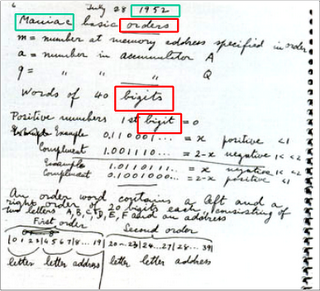 6 July 28 1952
Maniac basic orders
m = number at memory address specified in order
a = number in accumulator A
q = " " " Q
Words of 40 bigits
Positive numbers 1st bigit = 0
Example 0.110001... = x positive <1
Complement 1.001110... = 2-x negative 1< <2
Example 1.011011... = x negative 1< <2
Complement 0.100100... = 2-x positive <1
An order word contains a left and a
right order of 20 bigits each, consisting of
two letters A, B, C, D, E, F and an address
First order Second order
0 1 2 3 4 5 6 7 8...19 20 21..23 24...27 28...39
letter letter address letter letter address